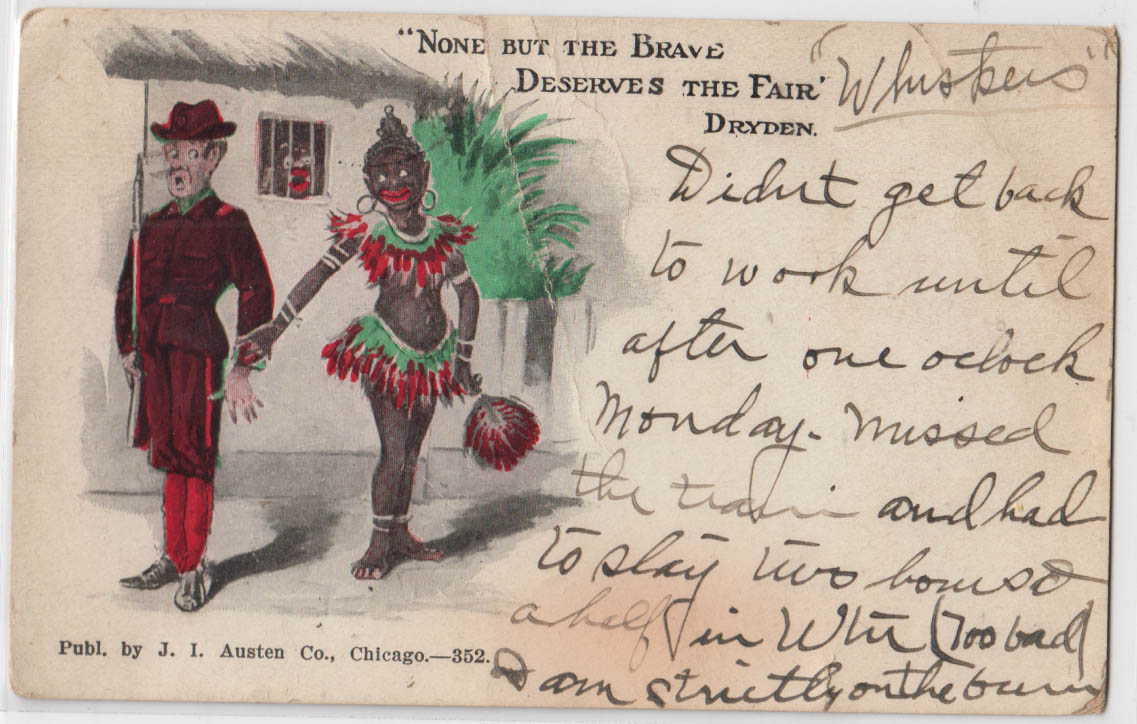 "NONE BUT THE BRAVE
DESERVES THE FAIR'
DRYDEN.
"Whiskers"
Didnt get back
to work until
after one oclock
Monday. Missed
the train and had
to stay two hours &
a half in (Too bad)
I am strictly on the bum
Publ. by J. I. Austen Co., Chicago.—352.